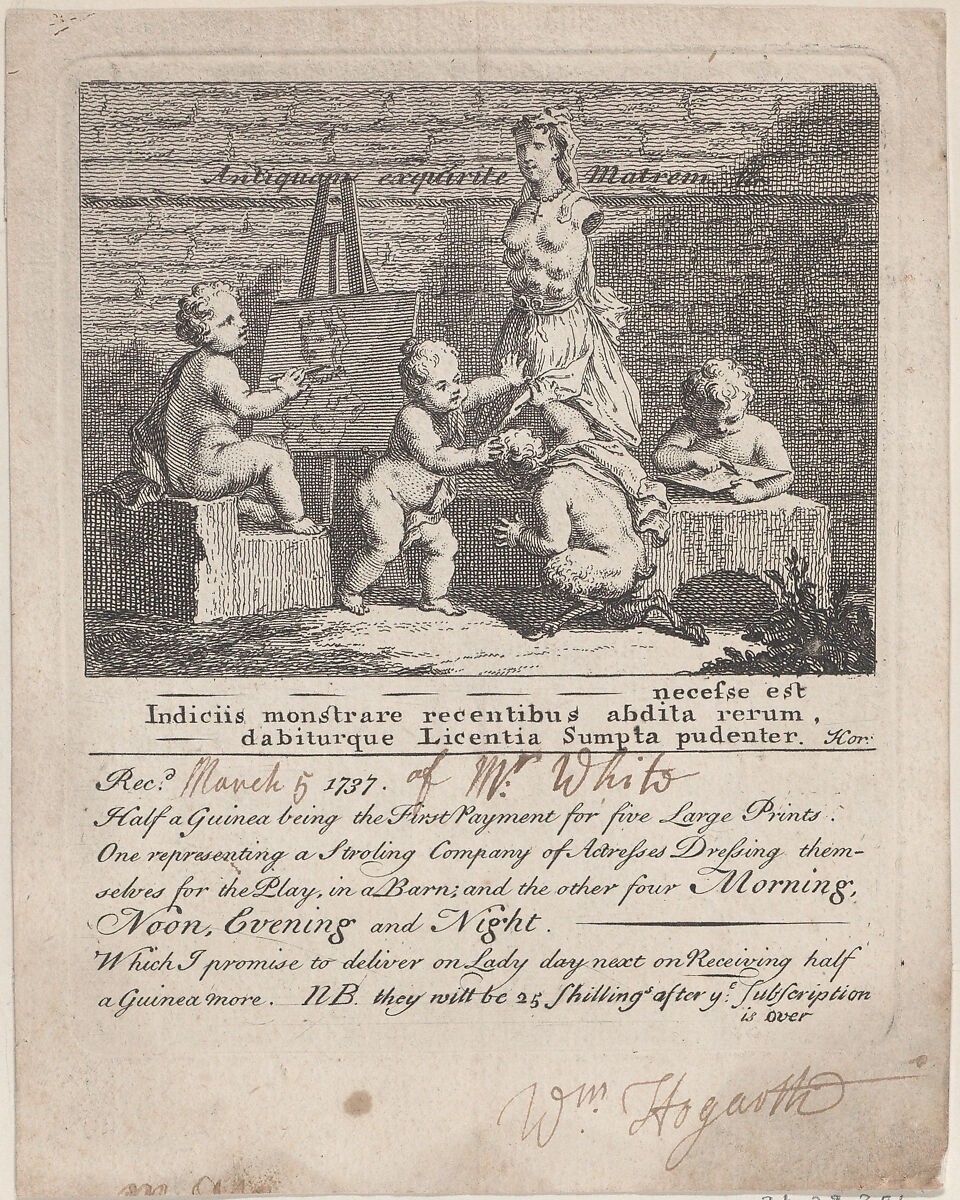 Antiquam exquirite Matrem
— — — — — necesse est
Indiciis monstrare recentibus abdita rerum,
— dabiturque Licentia Sumpta pudenter. Hor:
Rec.d March 5 1737. of Mr. White
Half a Guinea being the First Payment for five Large Prints.
One representing a Stroling Company of Actresses Dressing them-
selves for the Play, in a Barn; and the other four Morning,
Noon, Evening and Night. —
Which I promise to deliver on Lady day next on Receiving half
a Guinea more. NB. they will be 25 Shillings after ye. Subscription
is over
Wm Hogarth